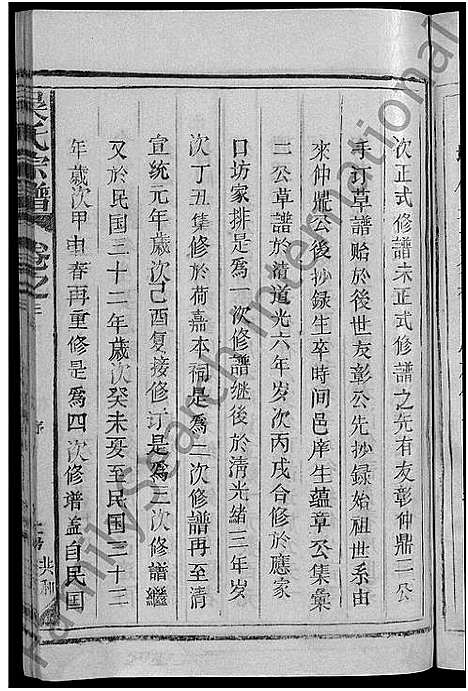 次正式修譜未正式修譜之先有友彰仲鼎二公
手订草譜貽於後世友彰公先抄録始祖世系由
來仲鼎公後抄録生卒時间邑庠生蕴章公集彙
二公草譜於清道光六年岁次丙戌合修於應家
口坊家排是為一次修譜继後於清光緒三年岁
次丁丑集修於荷嘉本祠是為二次修譜再至清
宣統元年歲次己酉复接修订是為三次修譜繼
又於民国三十二年歲次癸未妥至民国三十三
年歲次甲申春再重修是為四次修谱盖自民国
氏宗譜
卷之
FamilySearch International